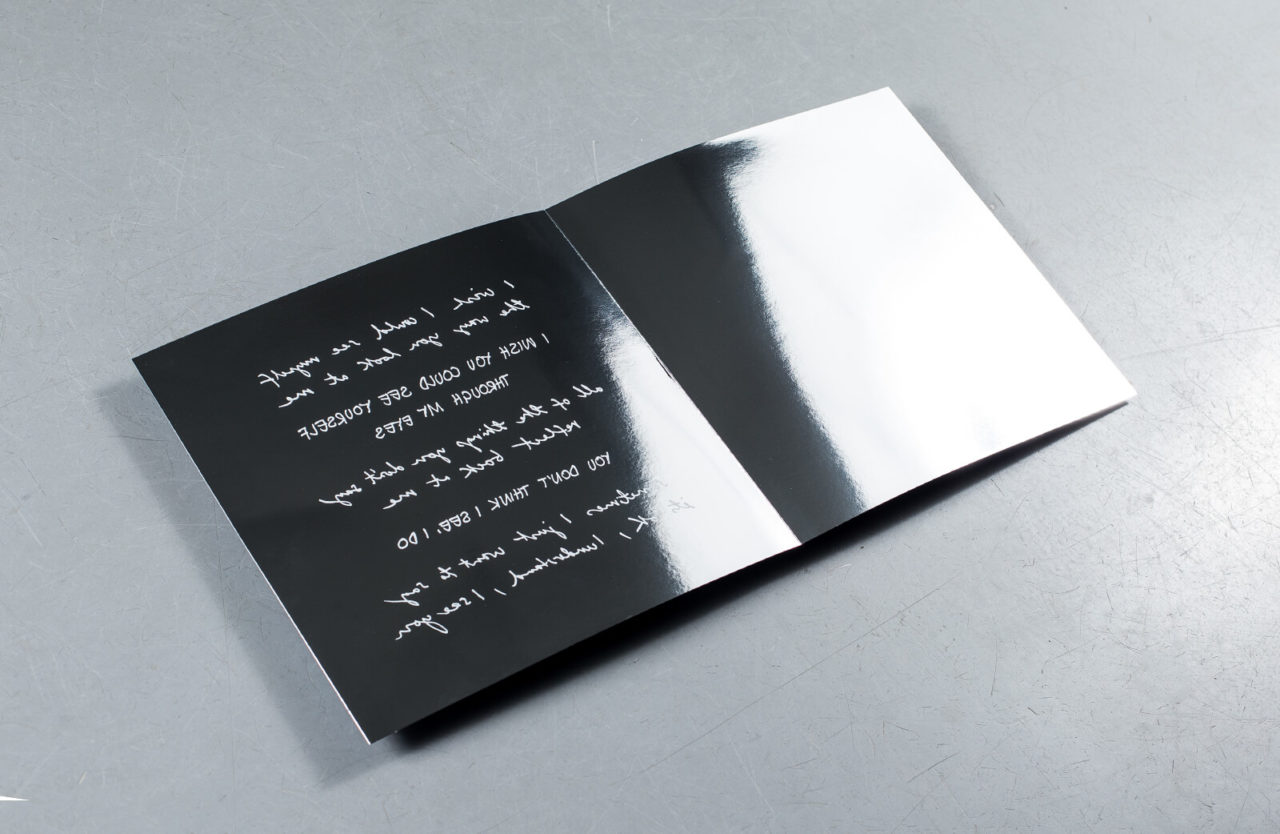 I wish I could see myself
the way you look at me
I WISH YOU COULD SEE YOURSELF
THROUGH MY EYES
all of the things you don't say
reflect back at me
YOU DON'T THINK I SEE, I DO
sometimes I just want to say
it's ok, I understand, I see you